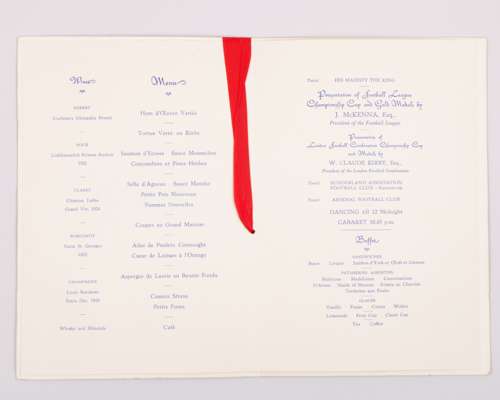 Wines
SHERRY
HOCK
1935
CLARET
Chateau Lafite
Grand Vin, 1924
BURGUNDY
Nuits St. Georges
1923
CHAMPAGNE
Louis Roederer
Extra Dry, 1928
Whisky and Minerals
Menu
Hors d'Œuvre Variés
Tortue Verte au Xérès
Saumon d'Ecosse Sauce Mousseline
Concombres et Pérou Hérdies
Selle d'Agneau Sauce Menthe
Petits Pois Nouveaux
Pommes Nouvelles
Coupes au Grand Marnier
Ailes de Poulets Connaught
Cœur de Laitues à l'Orange
Asperges de Lauris au Beurre Fondu
Cassata Sforza
Petits Fours
Café
Toast HIS MAJESTY THE KING
Presentation of Football League
Championship Cup and Gold Medals by
J. McKENNA, Esq.,
President of the Football League
Presentation of
London Football Combination Championship Cup
and Medals by
W. CLAUDE KIRBY, Esq.,
President of the London Football Combination
Toast SUNDERLAND ASSOCIATION
FOOTBALL CLUB - Runners-up
Toast ARSENAL FOOTBALL CLUB
DANCING till 12 Midnight
CABARET 10.45 p.m.
Buffet
SANDWICHES
PATISSERIES ASSORTIES
GLACES
Vanille Fraise Citron Moka
Lemonade Fruit Cup Claret Cup
Tea Coffee